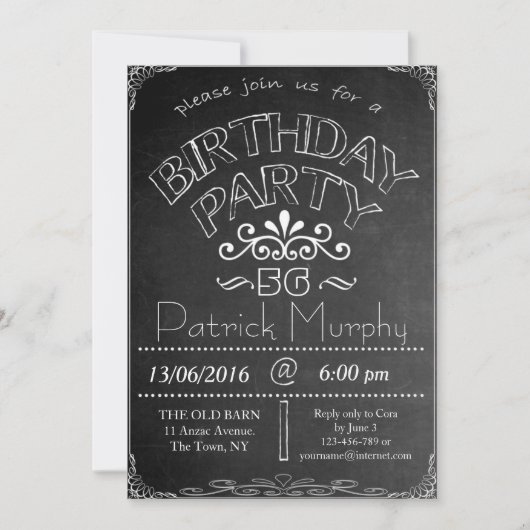 please join us for a
BIRTHDAY
PARTY
56
Patrick Murphy
13/06/2016 @ 6:00 pm
THE OLD BARN
11 Anzac Avenue.
The Town, NY
Reply only to Cora
by June 3
123-456-789 or
yourname@internet.com